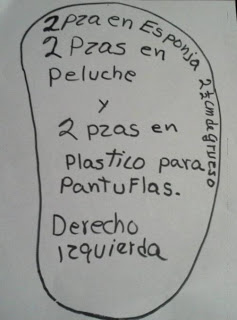 2 Pza en Esponja 2½ cm de grueso
2 Pzas en
Peluche
y
2 pzas en
Plastico para
Pantuflas.
Derecho
izquierda